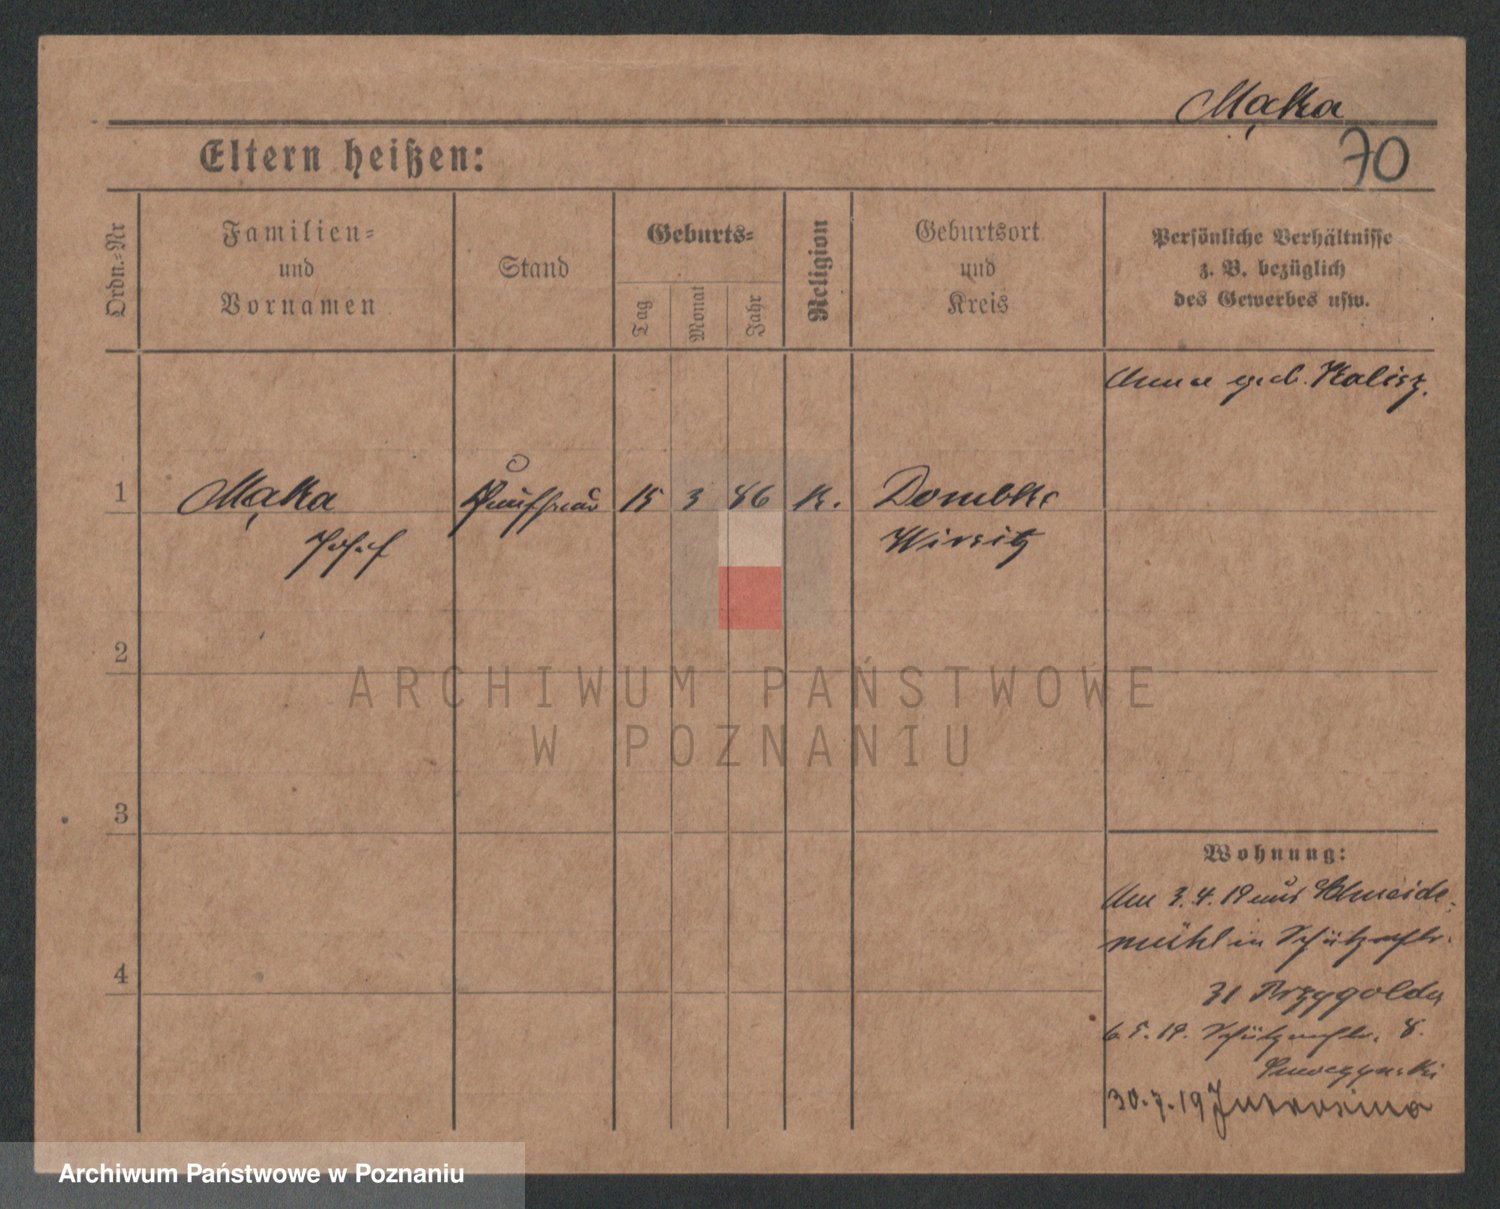 Mąka
70
Eltern heißen:
Ordn.-Nr
Familien-
und
Vornamen
Stand
Geburts-
Tag
Monat
Jahr
Religion
Geburtsort
und
Kreis
Persönliche Verhältnisse
z. B. bezüglich
des Gewerbes usw.
geb. Kalisz.
1
Mąka
Josef
Kaufmann
15
3
86
K.
Dombke
Wirsitz
2
3
4
Wohnung:
Am 3.4.19 aus Schneide-
mühl in Schützenstr.
31 Przygolda
6.5.19. Schützenstr. 8.
30.7.19
ARCHIWUM PAŃSTWOWE
W POZNANIU
Archiwum Państwowe w Poznaniu